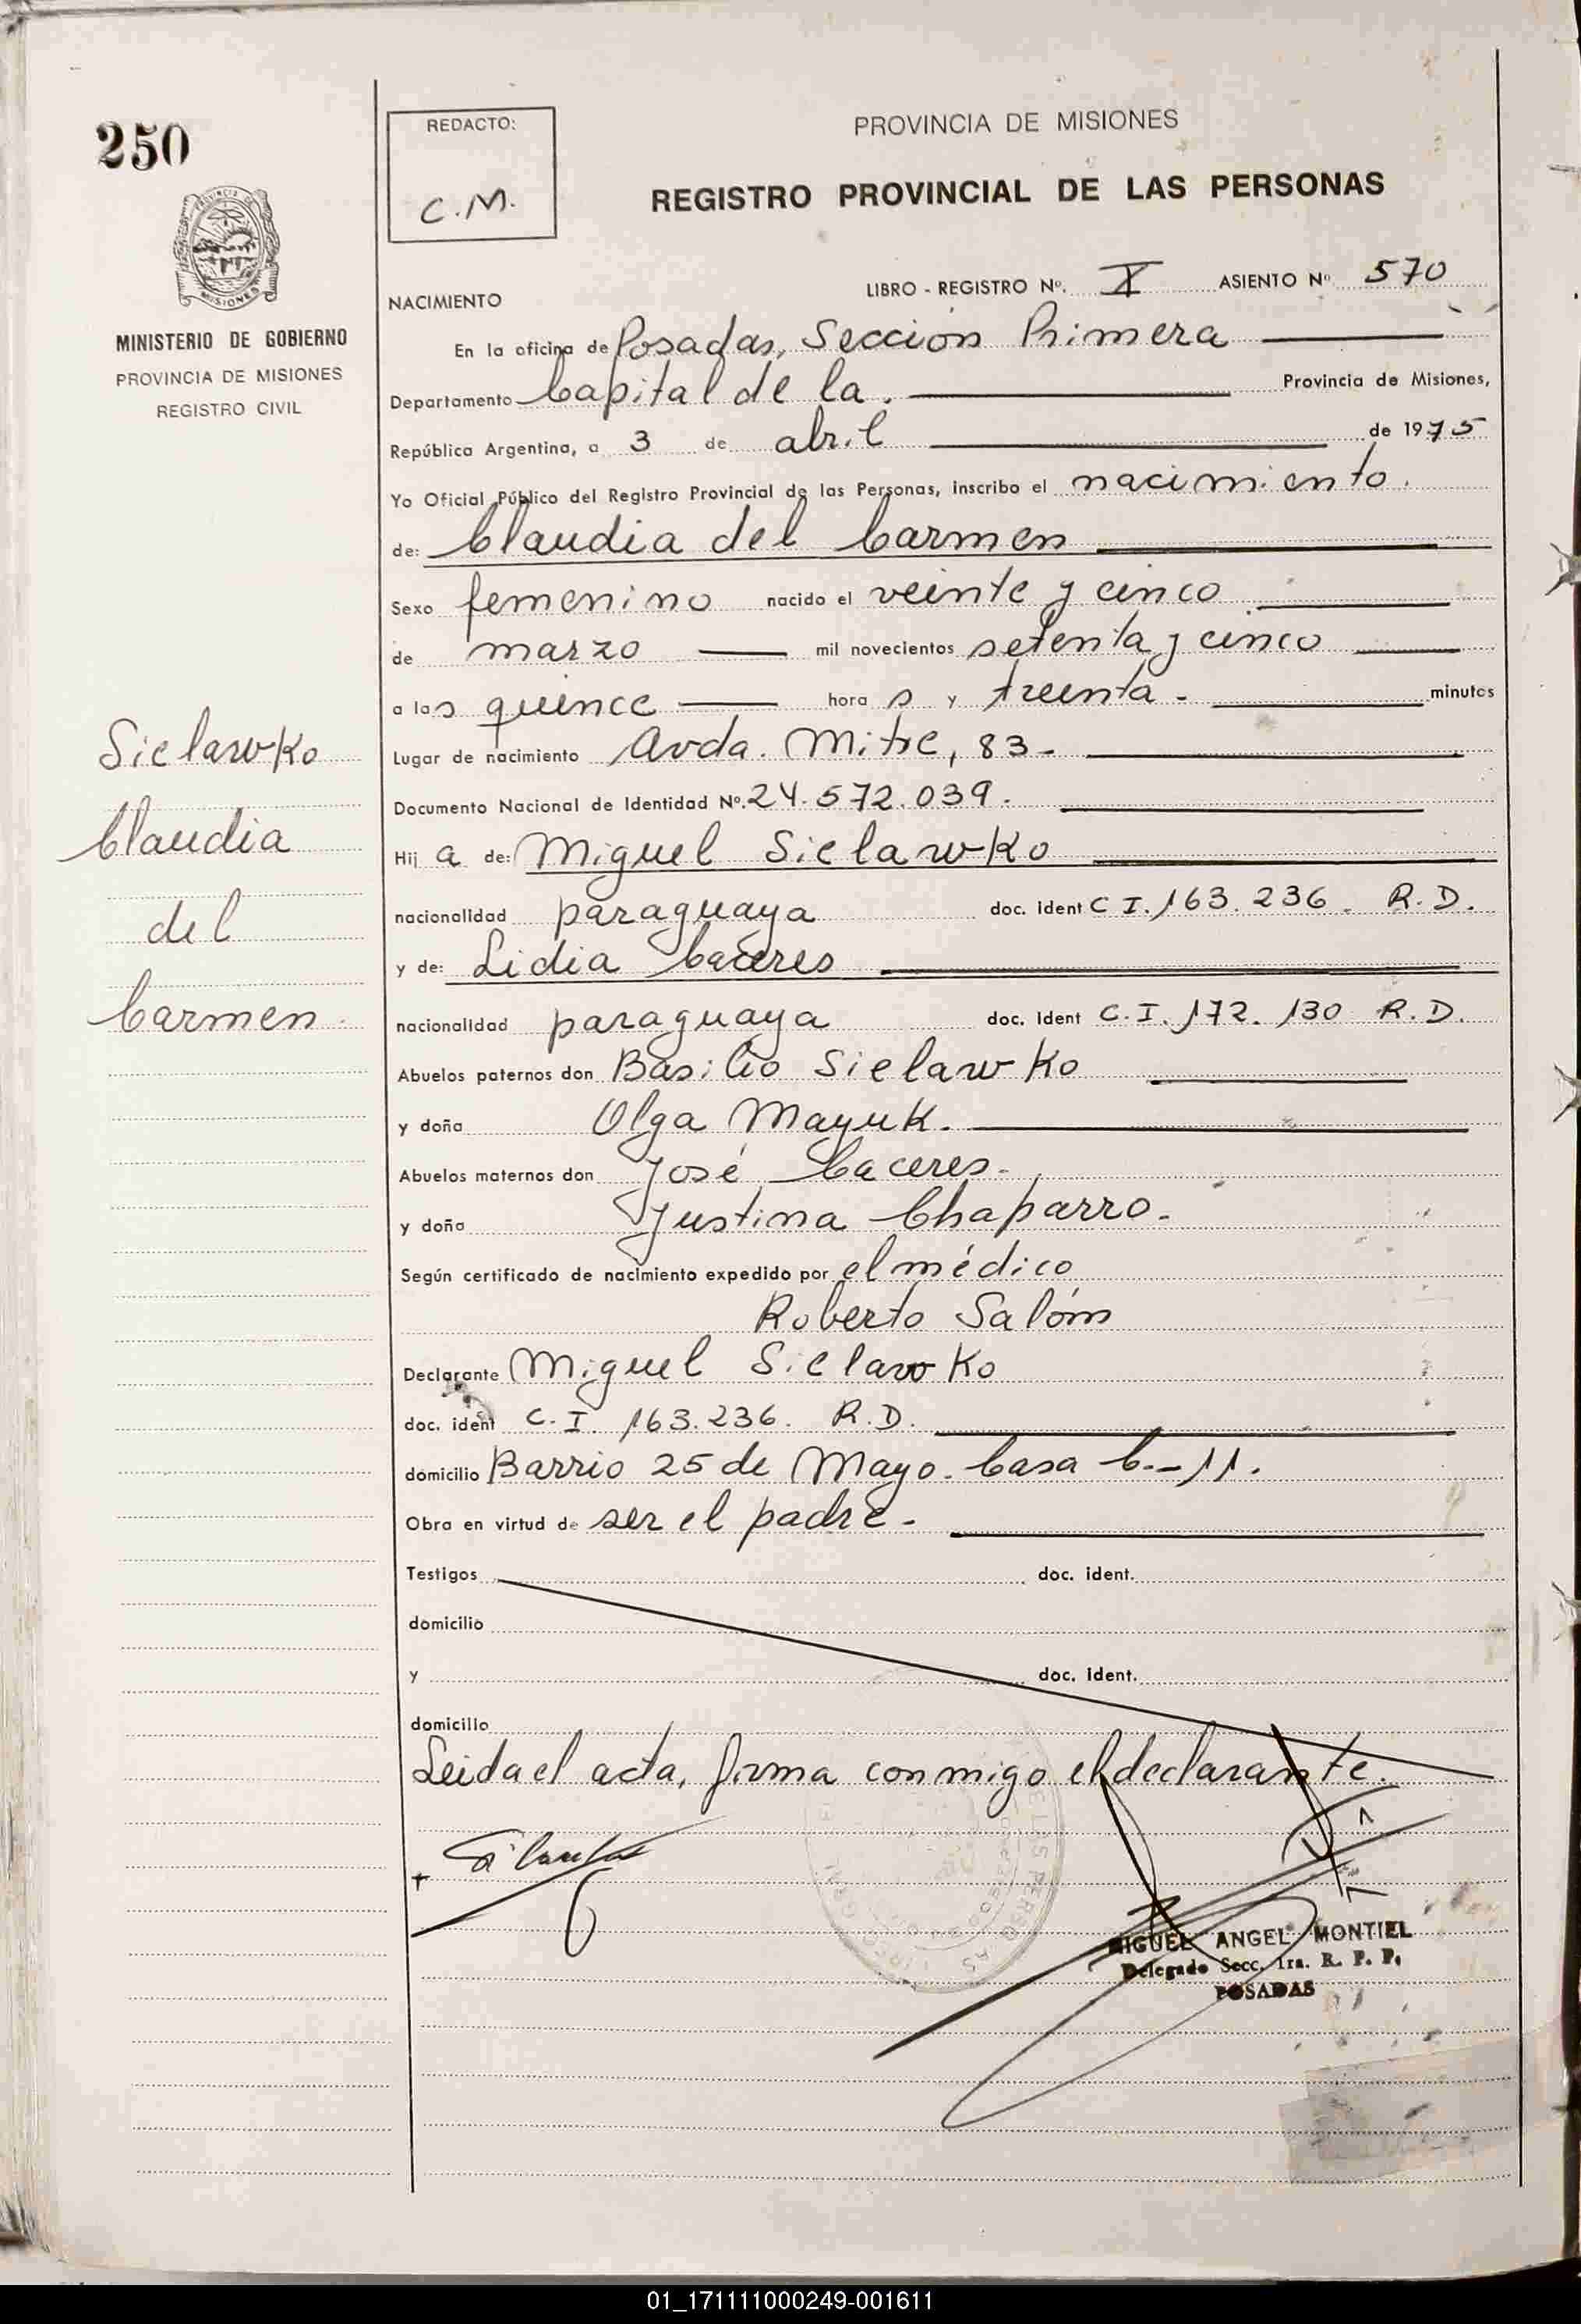 250
REDACTO:
C.M.
PROVINCIA DE MISIONES
REGISTRO PROVINCIAL DE LAS PERSONAS
MINISTERIO DE GOBIERNO
PROVINCIA DE MISIONES
REGISTRO CIVIL
LIBRO - REGISTRO Nº. ASIENTO Nº 570
NACIMIENTO
En la oficina de Posadas, Sección Primera
Departamento Capital de la. Provincia de Misiones,
República Argentina, a 3 de abril de 1975
Yo Oficial Público del Registro Provincial de las Personas, inscribo el nacimiento.
de: Claudia del Carmen
Sexo femenino nacido el veinte y cinco
de marzo mil novecientos setenta y cinco
a las quince horas y treinta - minutos
Lugar de nacimiento Avda. Mitre, 83-
Documento Nacional de Identidad Nº. 24.572.039.
Hija de: Miguel Sielawko
nacionalidad paraguaya doc. ident C I. 163.236. R.D.
y de: Lidia Caceres
nacionalidad paraguaya doc. ident C.I. 172.130 R.D.
Abuelos paternos don Basilio Sielawko
y doña Olga Mayuk.
Abuelos maternos don José Caceres-
y doña Justina Chaparro.
Según certificado de nacimiento expedido por el médico
Roberto Salóm
Declarante Miguel Sielawko
doc. ident C.I. 163.236. R.D.
domicilio Barrio 25 de Mayo. Casa C.-11.
Obra en virtud de ser el padre-
Testigos doc. ident.
domicilio
y doc. ident.
domicilio
Leida el acta, firma conmigo el declarante.
MIGUEL ANGEL MONTIEL
Delegado Secc. 1ra. R. P. P.
POSADAS
Sielawko
Claudia
del
Carmen.
01_171111000249-001611